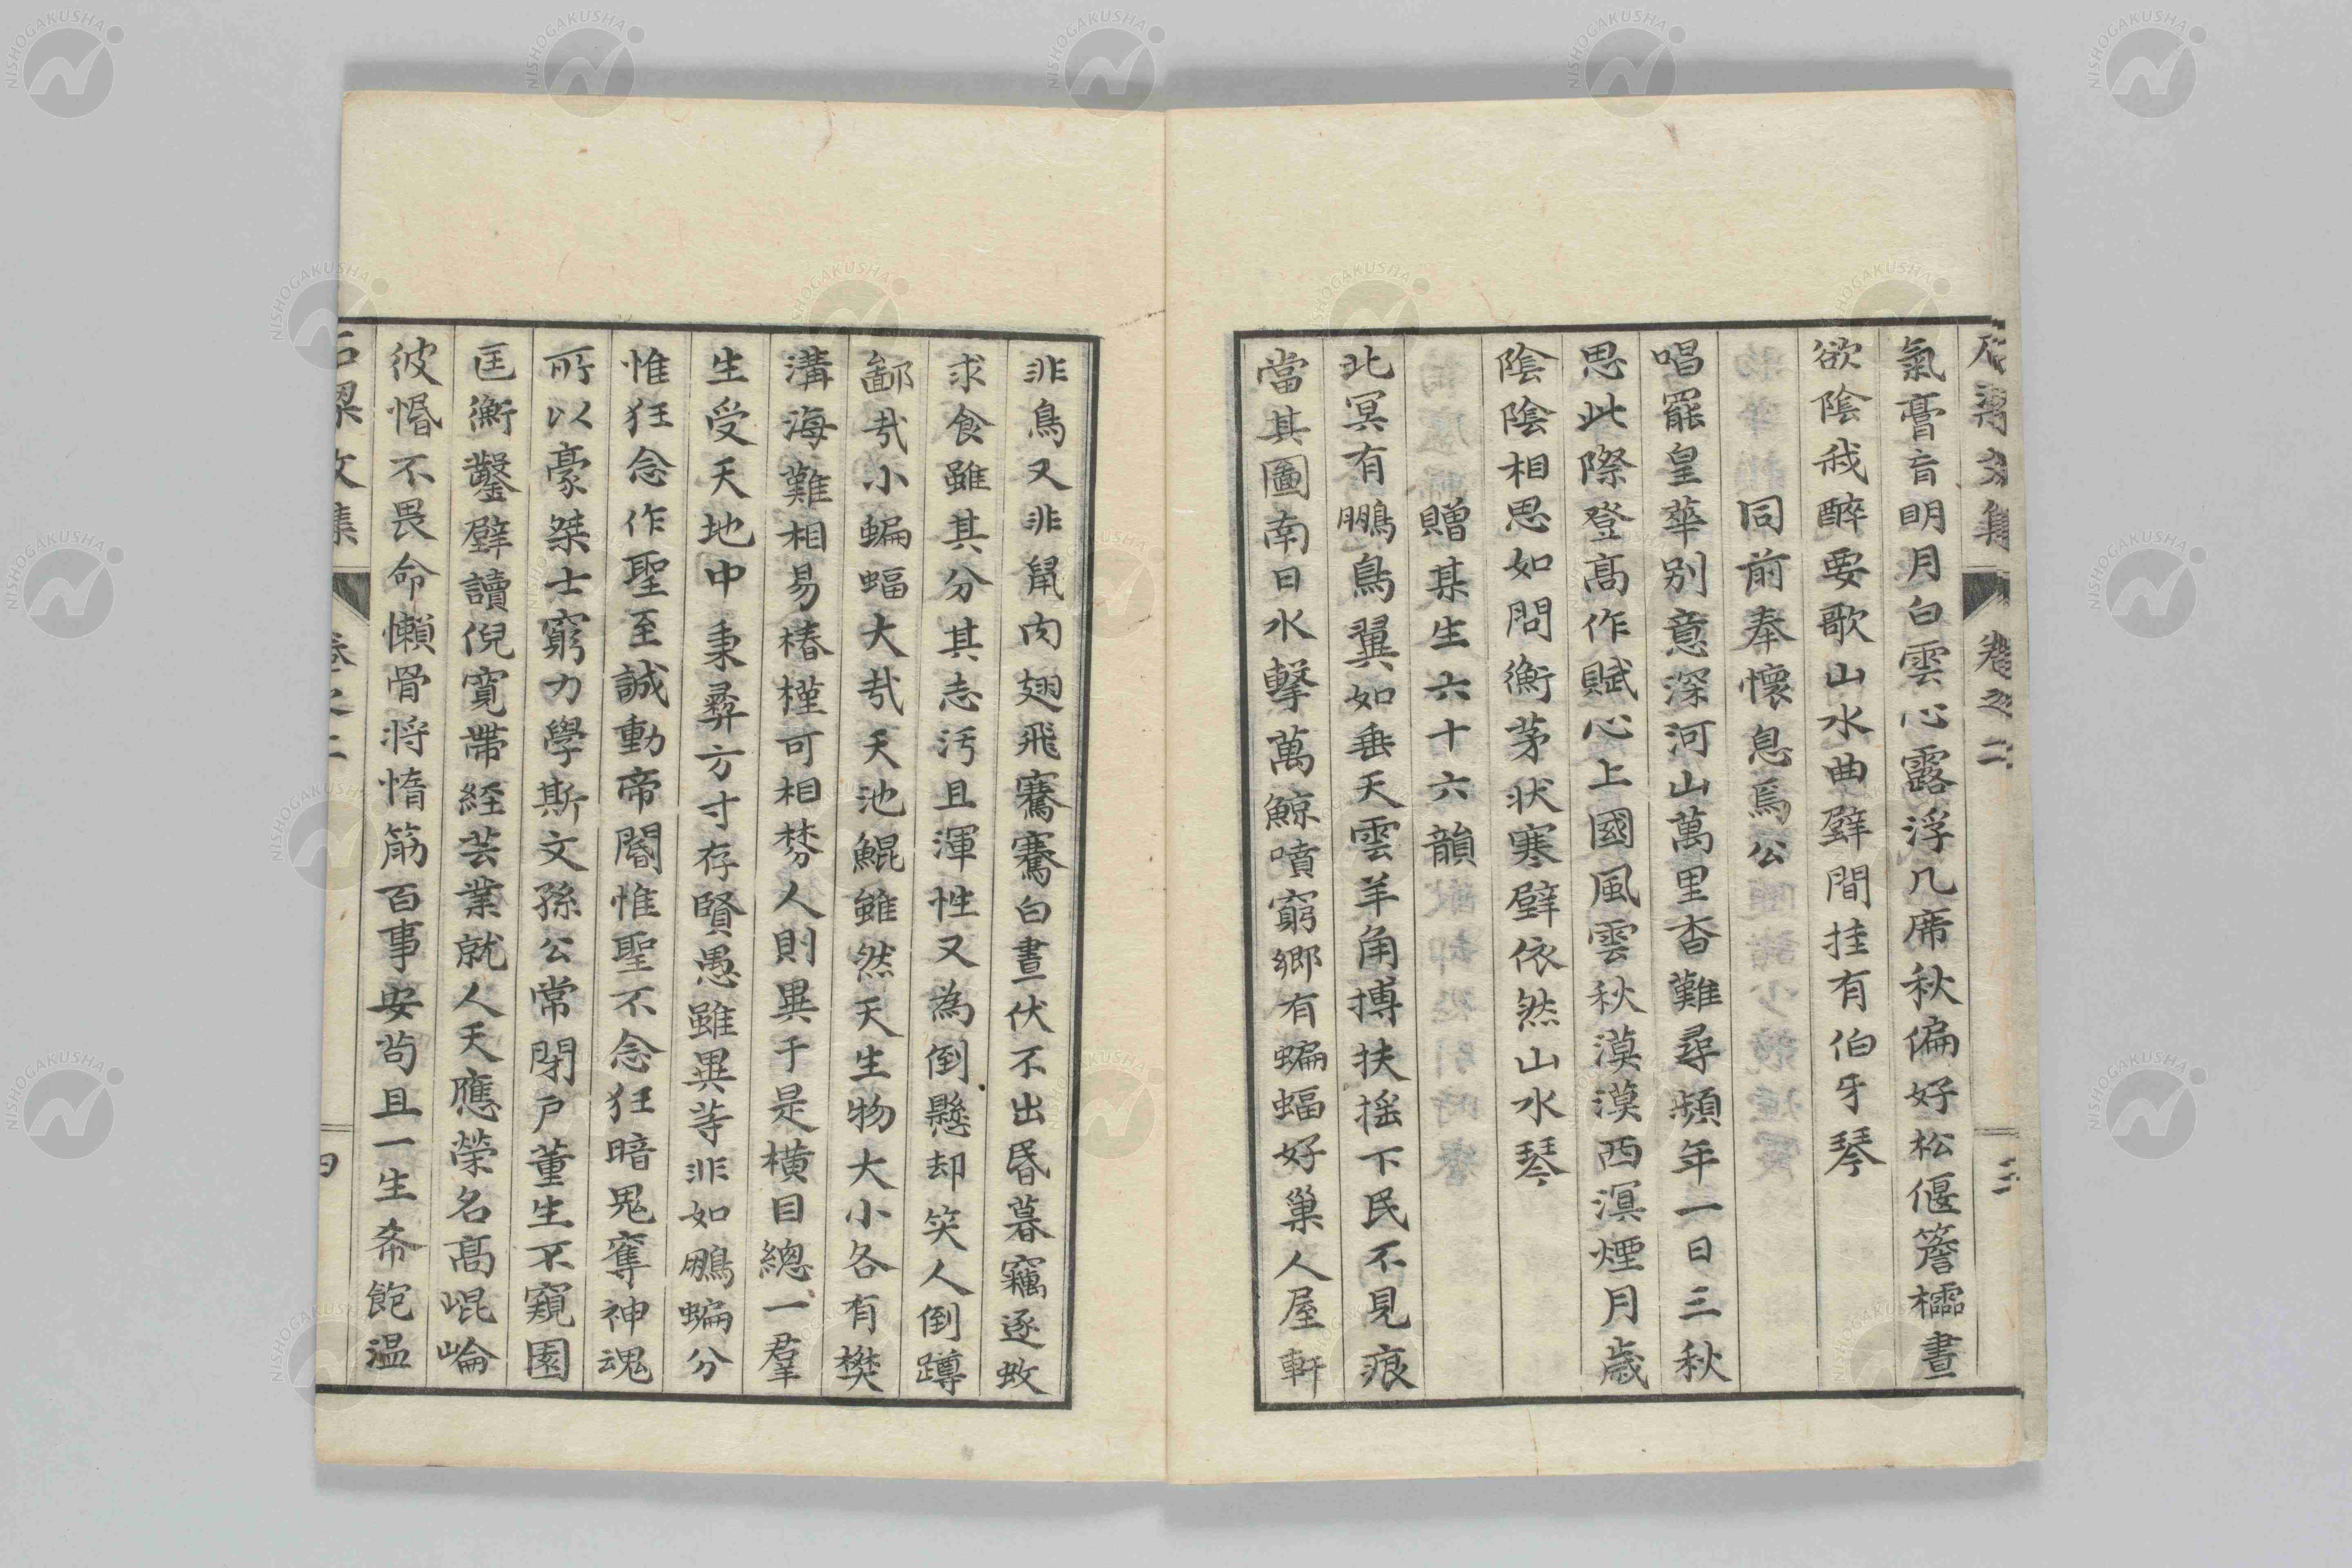 石梁文集 卷之二 三
氣膏肓明月白雲心露浮几席秋偏好松偃簷櫺晝
欲陰我醉要歌山水曲壁間挂有伯牙琴
同前奉懷息焉公
唱罷皇華別意深河山萬里杳難尋頻年一日三秋
思此際登高作賦心上國風雲秋漠漠西溟煙月歳
陰陰相思如問衡茅状寒壁依然山水琴
贈某生六十六韻
北冥有鵬鳥翼如垂天雲羊角摶扶搖下民不見痕
當其圖南日水擊萬鯨噴窮郷有蝙蝠好巢人屋軒
非鳥又非鼠肉翅飛騫騫白晝伏不出昏暮竊逐蚊
求食雖其分其志汚且渾性又為倒懸却笑人倒蹲
鄙哉小蝙蝠大哉天池鯤雖然天生物大小各有樊
溝海難相易椿槿可相棼人則異于是横目總一羣
生受天地中秉彛方寸存賢愚雖異等非如鵬蝙分
惟狂念作聖至誠動帝閽惟聖不念狂暗鬼奪神魂
所以豪桀士窮力學斯文孫公常閉戸董生不窺園
匡衡鑿壁讀倪寛帶経芸業就人天應榮名髙崐崘
彼惛不畏命懶骨将惰筋百事安苟且一生希飽温
石梁文集 卷之二 四
NISHOGAKUSHA